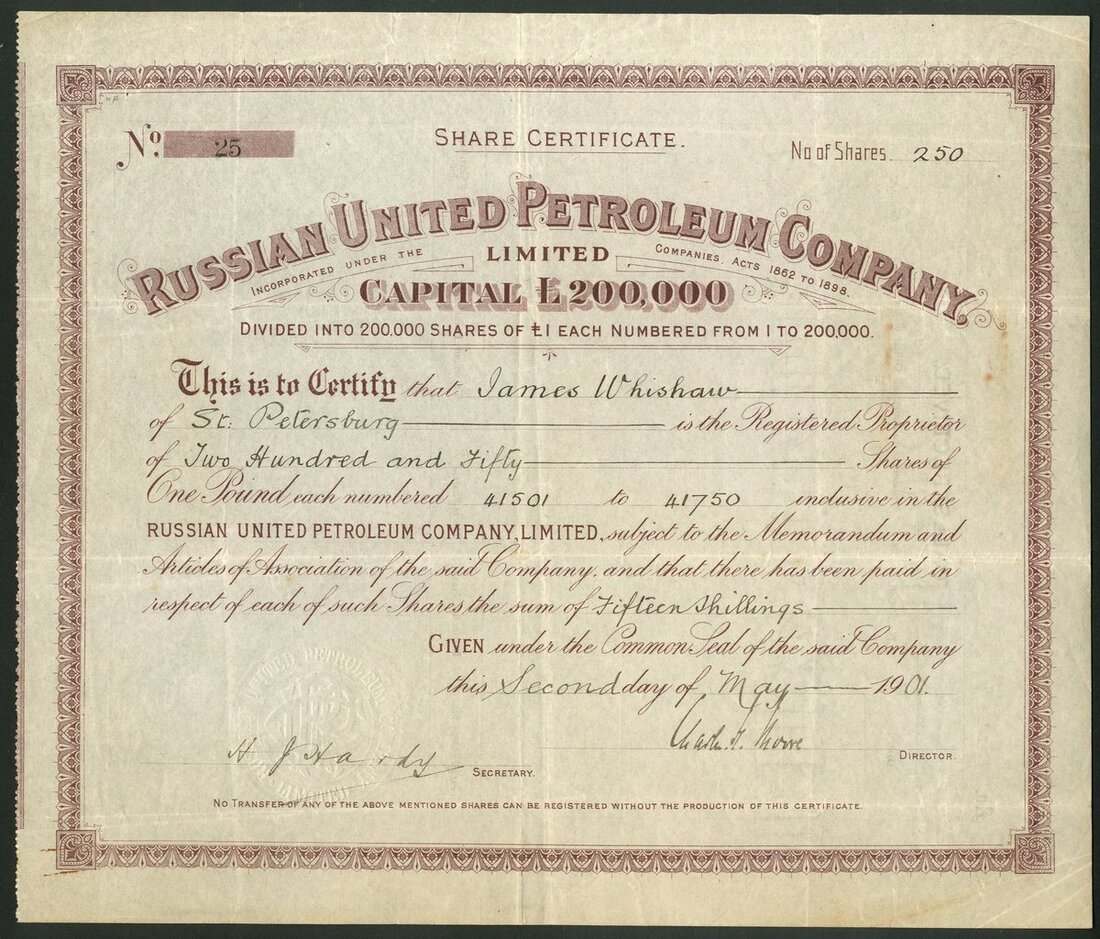 No. 25
SHARE CERTIFICATE.
No of Shares. 250
RUSSIAN UNITED PETROLEUM COMPANY,
INCORPORATED UNDER THE COMPANIES, ACTS 1862 TO 1898.
LIMITED
CAPITAL £200,000
DIVIDED INTO 200.000 SHARES OF £1 EACH NUMBERED FROM 1 TO 200,000.
This is to Certify that James Whishaw
of St: Petersburg is the Registered Proprietor
of Two Hundred and Fifty Shares of
One Pound each numbered 41501 to 41750 inclusive in the
RUSSIAN UNITED PETROLEUM COMPANY, LIMITED, subject to the Memorandum and
Articles of Association of the said Company, and that there has been paid in
respect of each of such Shares the sum of Fifteen Shillings
GIVEN under the Common Seal of the said Company
this Second day of May 1901.
H J Hardy
SECRETARY.
Moore
DIRECTOR.
UNITED PETROLEUM
LIMITED
NO TRANSFER OF ANY OF THE ABOVE MENTIONED SHARES CAN BE REGISTERED WITHOUT THE PRODUCTION OF THIS CERTIFICATE.